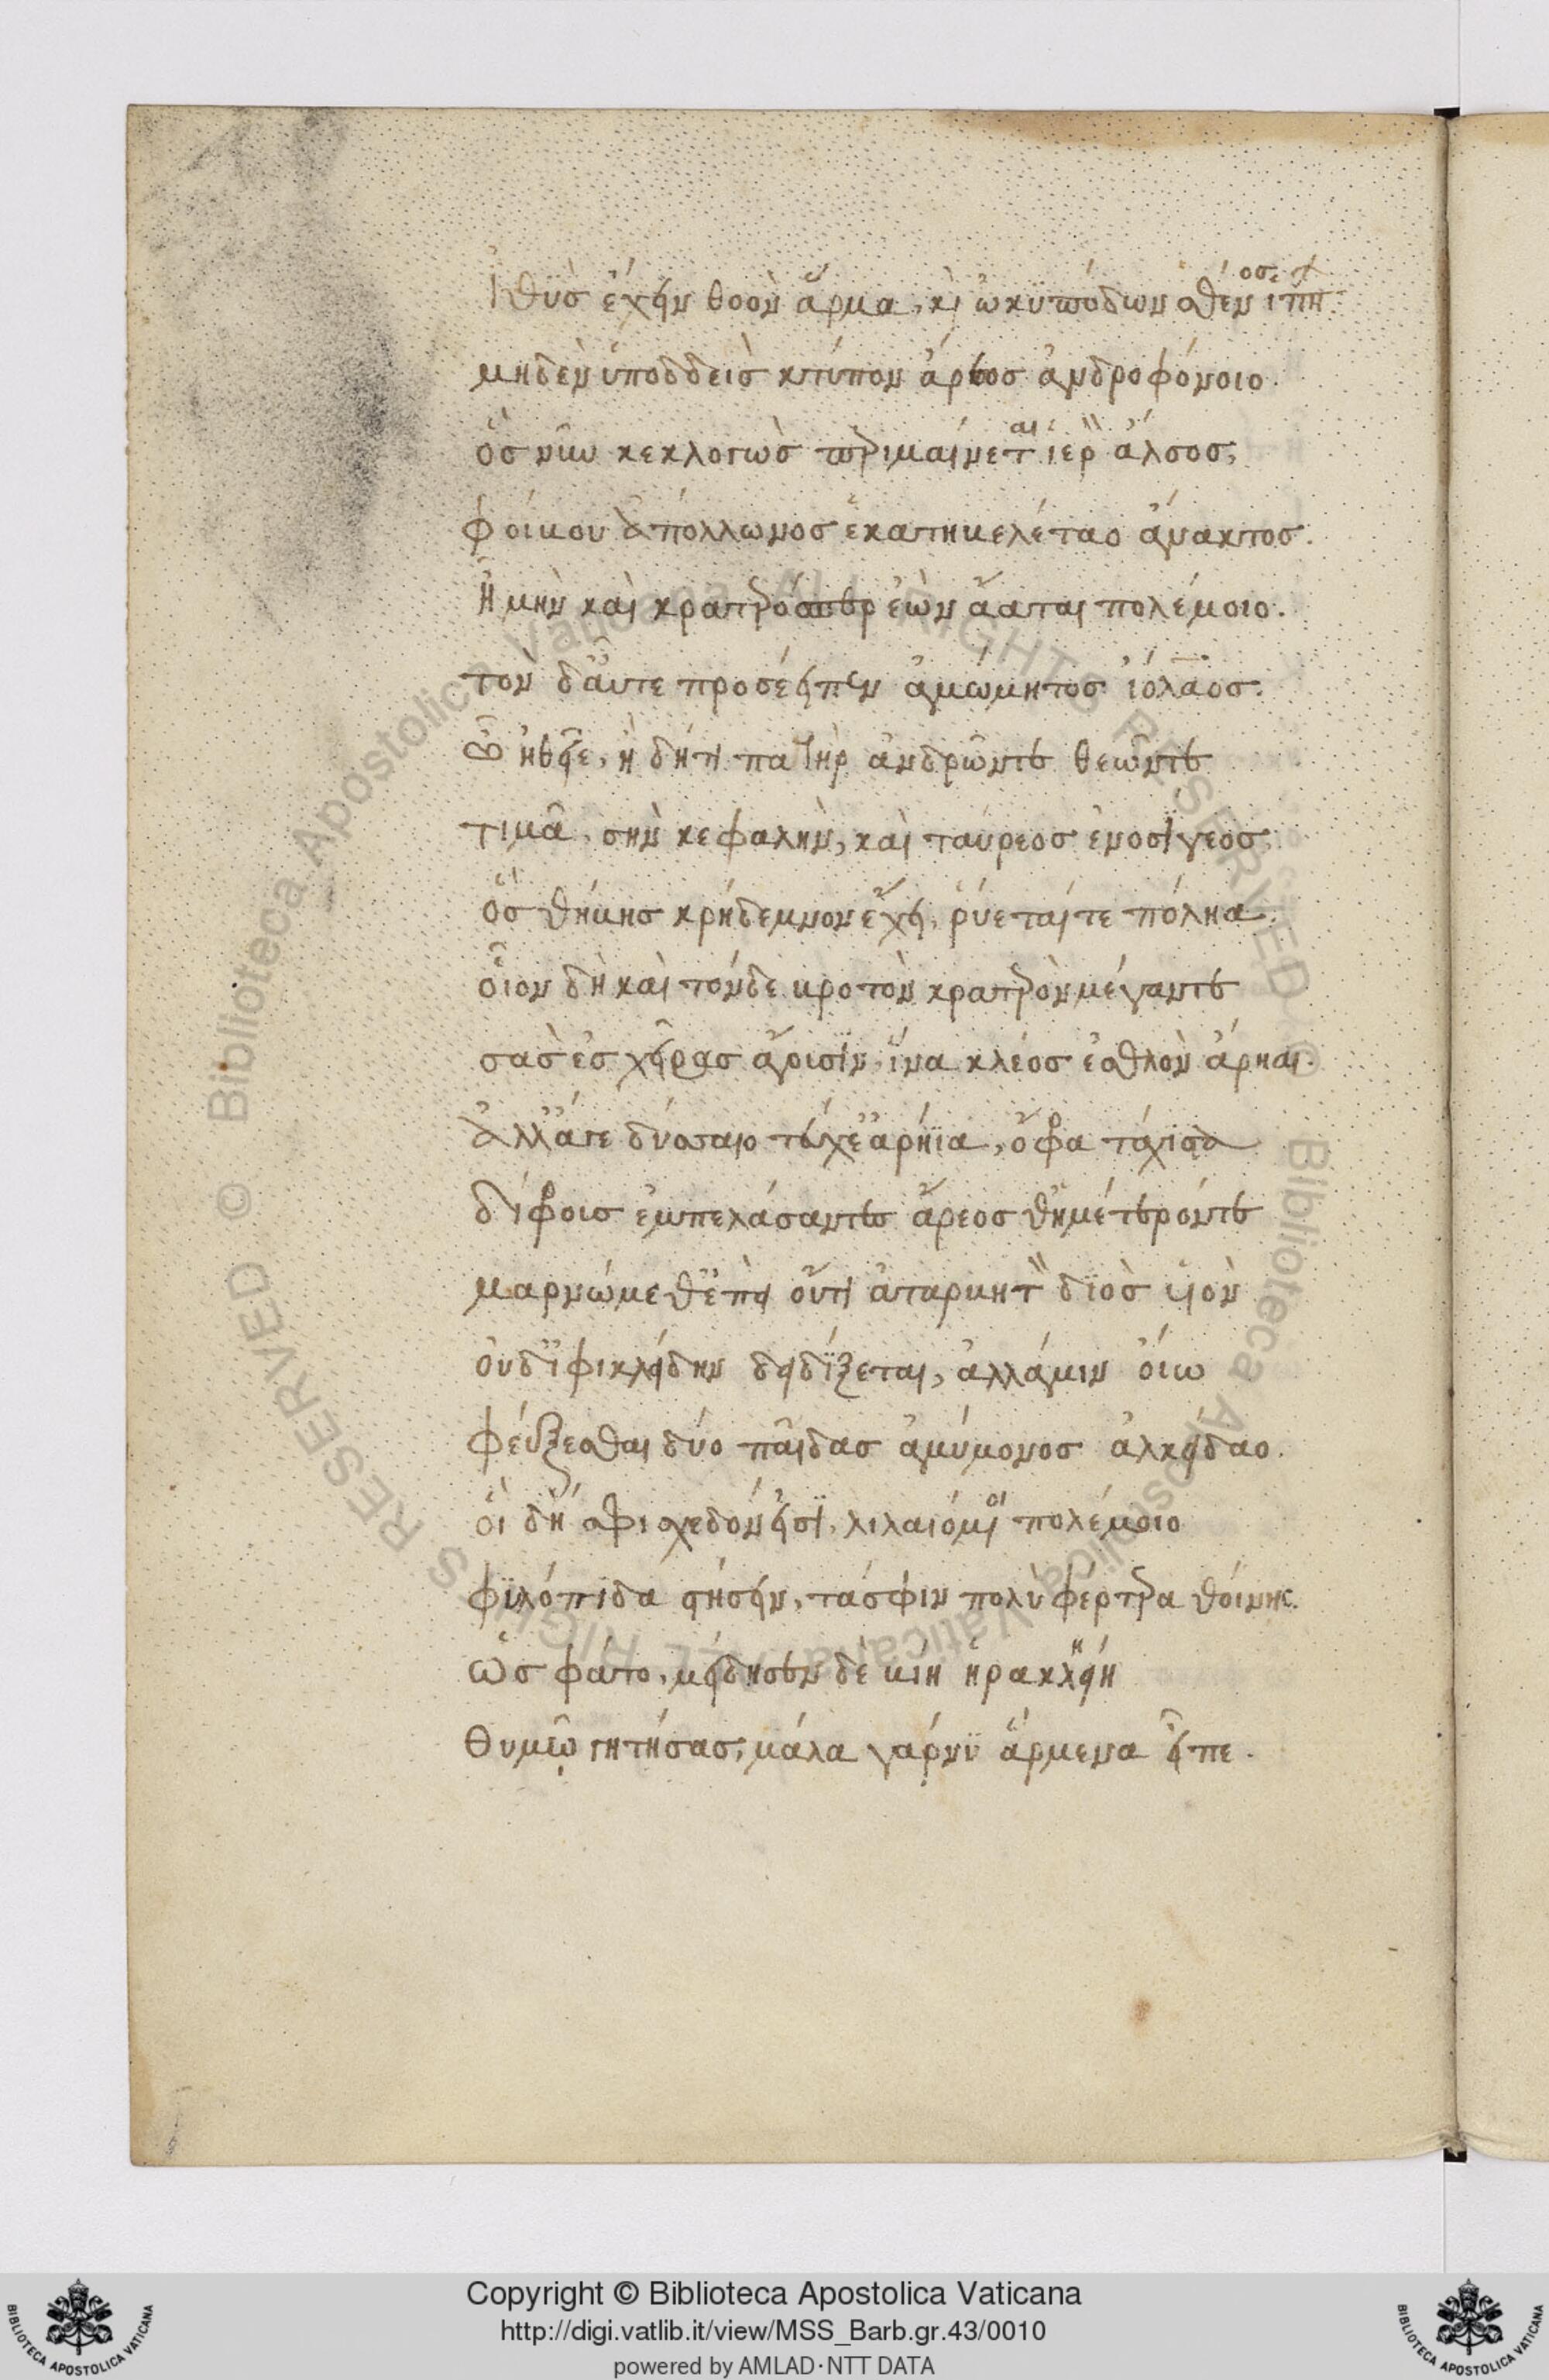 Ἰθὺσ ἔχειν θοὸν ἅρμα, κὶ ὠκυπόδων σθένοσ ἵππων.
μηδὲν ὑποδδεὶσ κτύπον ἄρεοσ ἀνδροφόνοιο.
ὃσ νῦν κεκληγὼσ περιμαίνεται ἱερὸν ἄλσοσ,
φοίβου ἀπόλλωνοσ ἑκατηβελέταο ἄνακτοσ.
Ἦ μὴν καὶ κρατερόσπερ ἐὼν ἄαται πολέμοιο.
τὸν δ' αὖτε προσέειπεν ἀμώμητοσ ἰόλαοσ.
Ὦ ἠθεῖε, ἦ δή τι πατὴρ ἀνδρῶντε θεῶντε
τιμᾶ, σὴν κεφαλὴν, καὶ ταύρεοσ ἐνοσίγεοσ,
ὃσ θήβησ κρήδεμνον ἔχει, ῥύεταί τε πόληα.
οἷον δὴ καὶ τόνδε βροτὸν κρατερὸν μέγαντε
σὰσ ἐσ χεῖρασ ἄγουσιν, ἵνα κλέοσ ἐσθλὸν ἄρηαι.
Ἀλλ' ἄγε δύσαιο τεύχε' ἀρήϊα, ὄφρα τάχιστα
δίφροισ ἐμπελάσαντεσ ἄρεοσ θ' ἡμέτερόντε
μαρνώμεθ' ἐπεὶ οὔτι ἀταρβητὸν διὸσ υἱὸν
οὐδ' ἰφικλείδην δειδίξεται, ἀλλά μιν οἴω
φεύξεσθαι δύο παῖδασ ἀμύμονοσ ἀλκείδαο.
οἳ δή σφι σχεδόν εἰσι, λιλαιόμενοι πολέμοιο
φυλόπιδα στήσειν, τά σφιν πολὺ φέρτερα θοίνησ.
Ὣσ φάτο, μείδησεν δὲ βίη ἡρακληείη
Θυμῷ γητήσασ, μάλα γάρ νυ ἄρμενα εἶπε.
Copyright © Biblioteca Apostolica Vaticana
http://digi.vatlib.it/view/MSS_Barb.gr.43/0010
powered by AMLAD·NTT DATA